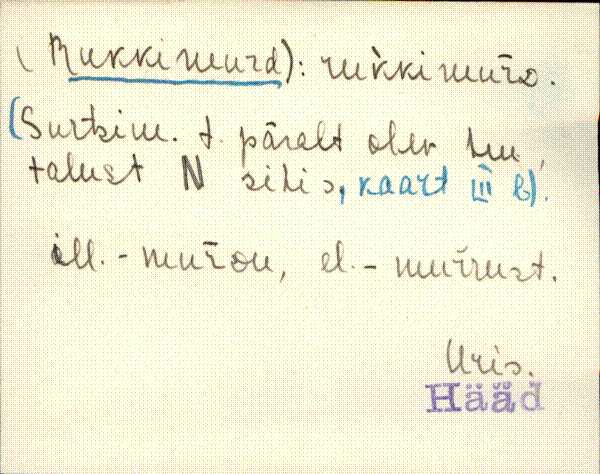 (Rukkimurd): rukkimurd.
(Surkim. t. päralt olev luu,
talust N sihis, kaart III b).
ill. - murdu, el. - murrust.
Uris.
Hääd